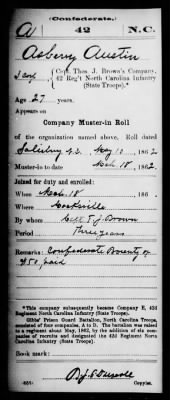 (Confederate.)
A 42 N.C.
Asberry Austin
Capt. Thos. J. Brown's Company,
42 Reg't North Carolina Infantry
(State Troops).*
Age 27 years.
Appears on
Company Muster-in Roll
of the organization named above. Roll dated
Salisbury N.C. May 10, 1862
Muster-in to date Mch 18, 1862.
Joined for duty and enrolled:
When Mch. 18, 186 .
Where Mocksville
By whom Capt. T. J. Brown
Period Three years
Remarks: Confederate Bounty of
$50 paid
*This company subsequently became Company E, 42d
Regiment North Carolina Infantry (State Troops).
Gibbs' Prison Guard Battalion, North Carolina Troops,
consisted of four companies, A to D. The battalion was raised
to a regiment about May, 1862, by the addition of six com-
panies of recruits and designated the 42d Regiment North
Carolina Infantry (State Troops).
Book mark:
Copyist.